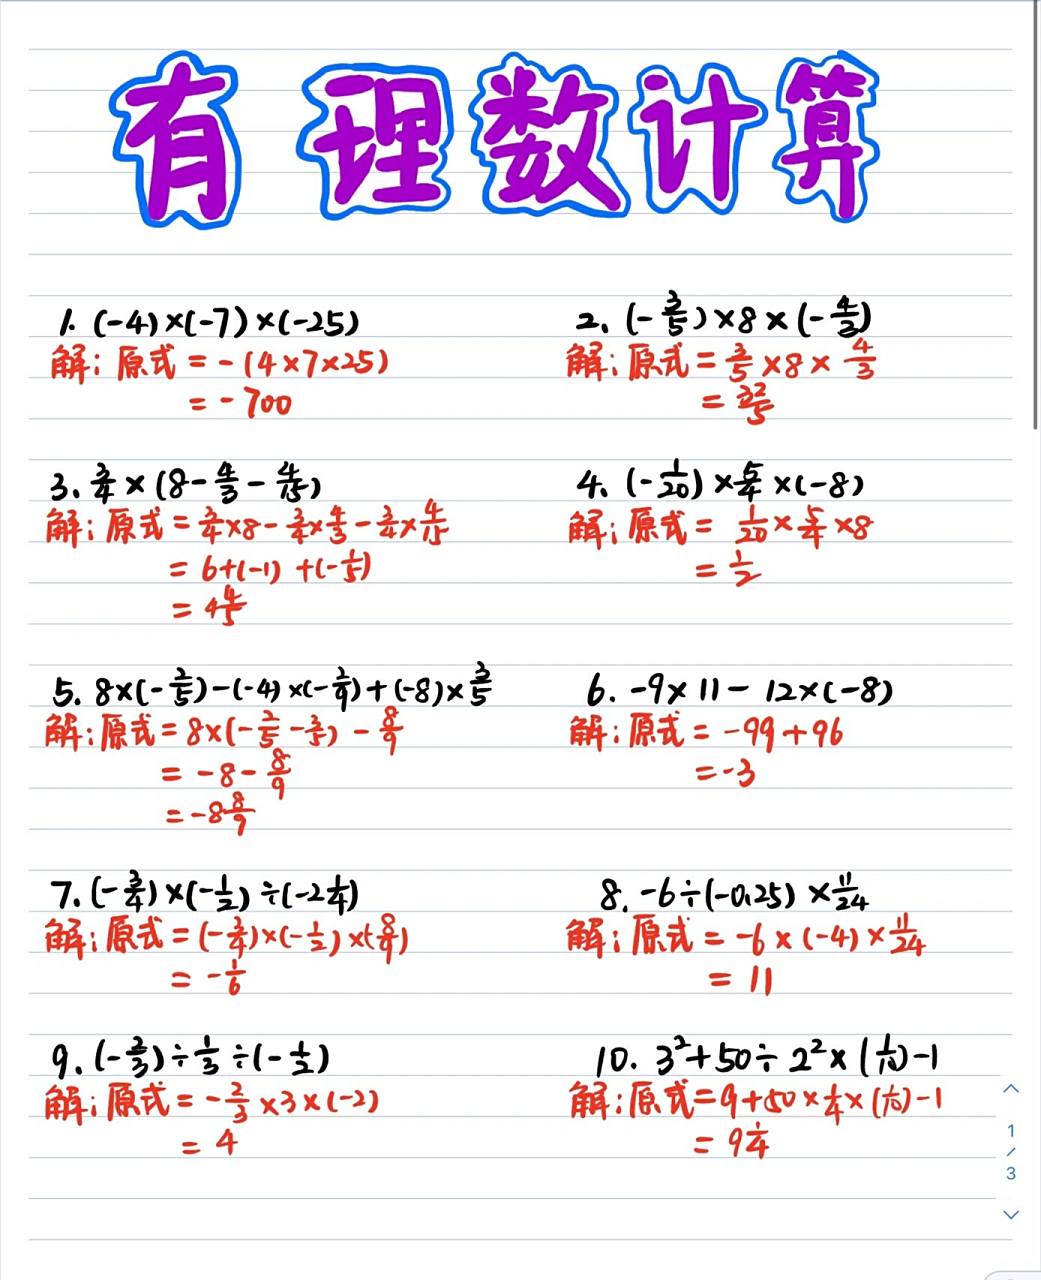 有理数计算
1. (-4)×(-7)×(-25)
解: 原式 = -(4×7×25)
= -700
2. (-3/5)×8×(-4/3)
解: 原式 = 3/5×8×4/3
= 32/5
3. 3/4×(8-4/3-4/15)
解: 原式 = 3/4×8-3/4×4/3-3/4×4/15
= 6+(-1)+(-1/5)
= 4 4/5
4. (-1/20)×5/4×(-8)
解: 原式 = 1/20×5/4×8
= 1/2
5. 8×(-2/5)-(-4)×(-2/9)+(-8)×3/5
解: 原式 = 8×(-2/5-3/5)-8/9
= -8-8/9
= -8 8/9
6. -9×11-12×(-8)
解: 原式 = -99+96
= -3
7. (-3/4)×(-1/2)÷(-2 1/4)
解: 原式 = (-3/4)×(-1/2)×(-4/9)
= -1/6
8. -6÷(-0.25)×11/24
解: 原式 = -6×(-4)×11/24
= 11
9. (-2/3)÷1/3÷(-1/2)
解: 原式 = -2/3×3×(-2)
= 4
10. 3²+50÷2²×(1/10)-1
解: 原式 = 9+50×1/4×(1/10)-1
= 9 1/4
1
/
3